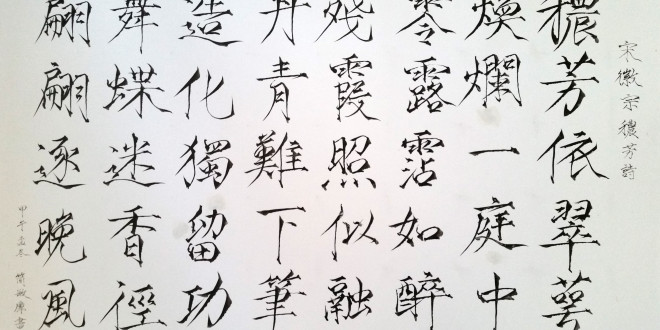 宋徽宗穠芳詩
穠芳依翠萼
煥爛一庭中
零露霑如醉
殘霞照似融
丹青難下筆
造化獨留功
舞蝶迷香徑
翩翩逐晚風
甲午孟冬 簡敏書